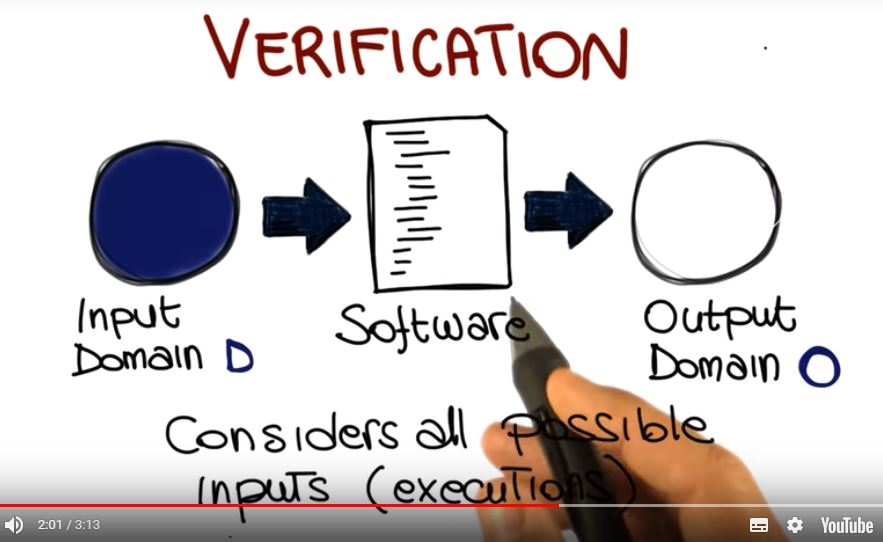 VERIFICATION
Input
Domain D
Software
Output
Domain O
Considers all possible
inputs (executions)
2:01 / 3:13
YouTube